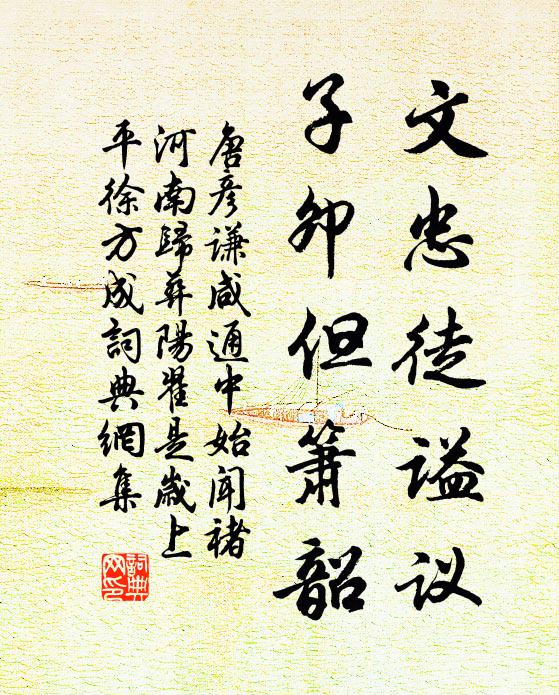 文忠徒谥议
子卯但箫韶
唐彦谦咸通中始闻褚
河南歸彝陽翟是歲上
平徐方成詞典網集
詞典
网印